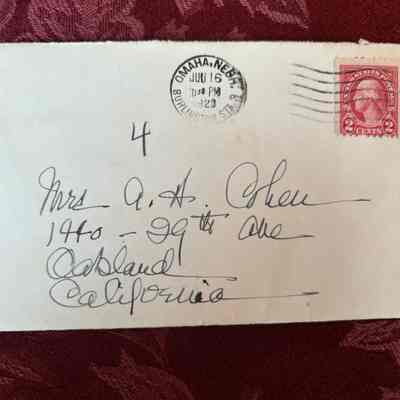 OMAHA, NEBR.
16
PM
BURLINGTON STA.
2 CENTS 2
4
Mrs A. H. Cohen
1940 - 29th Ave
Oakland
California